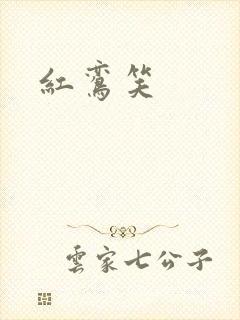 紅鸞笑
雲家七公子